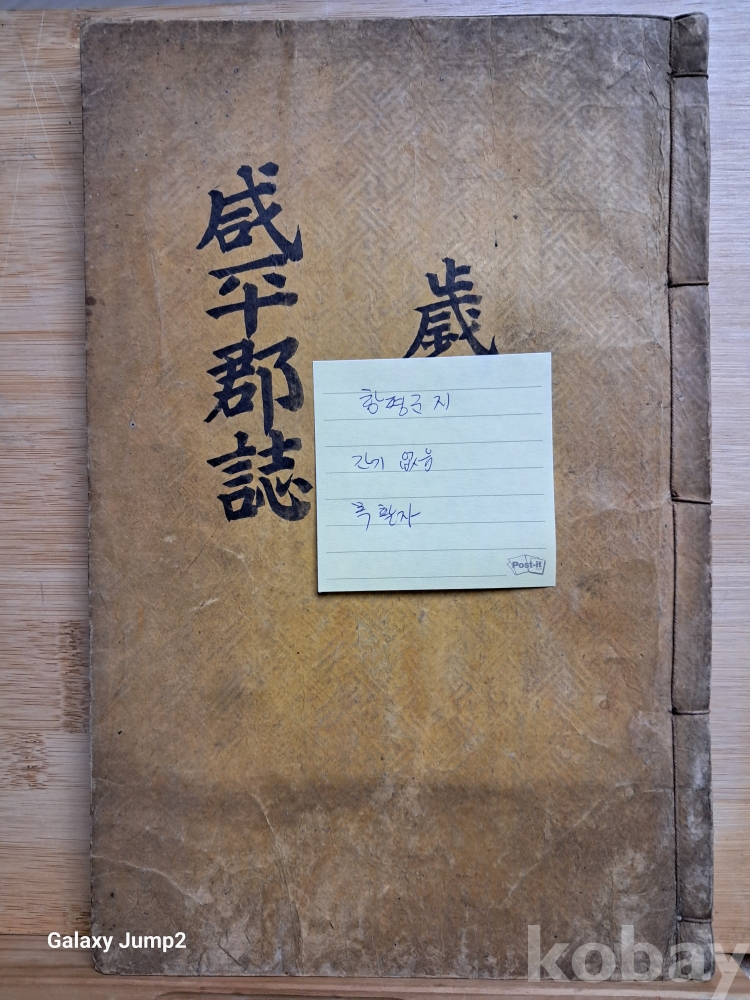 咸平郡誌
歲
함평군지
간기 없음
목활자
Post-it
Galaxy Jump2
kobay